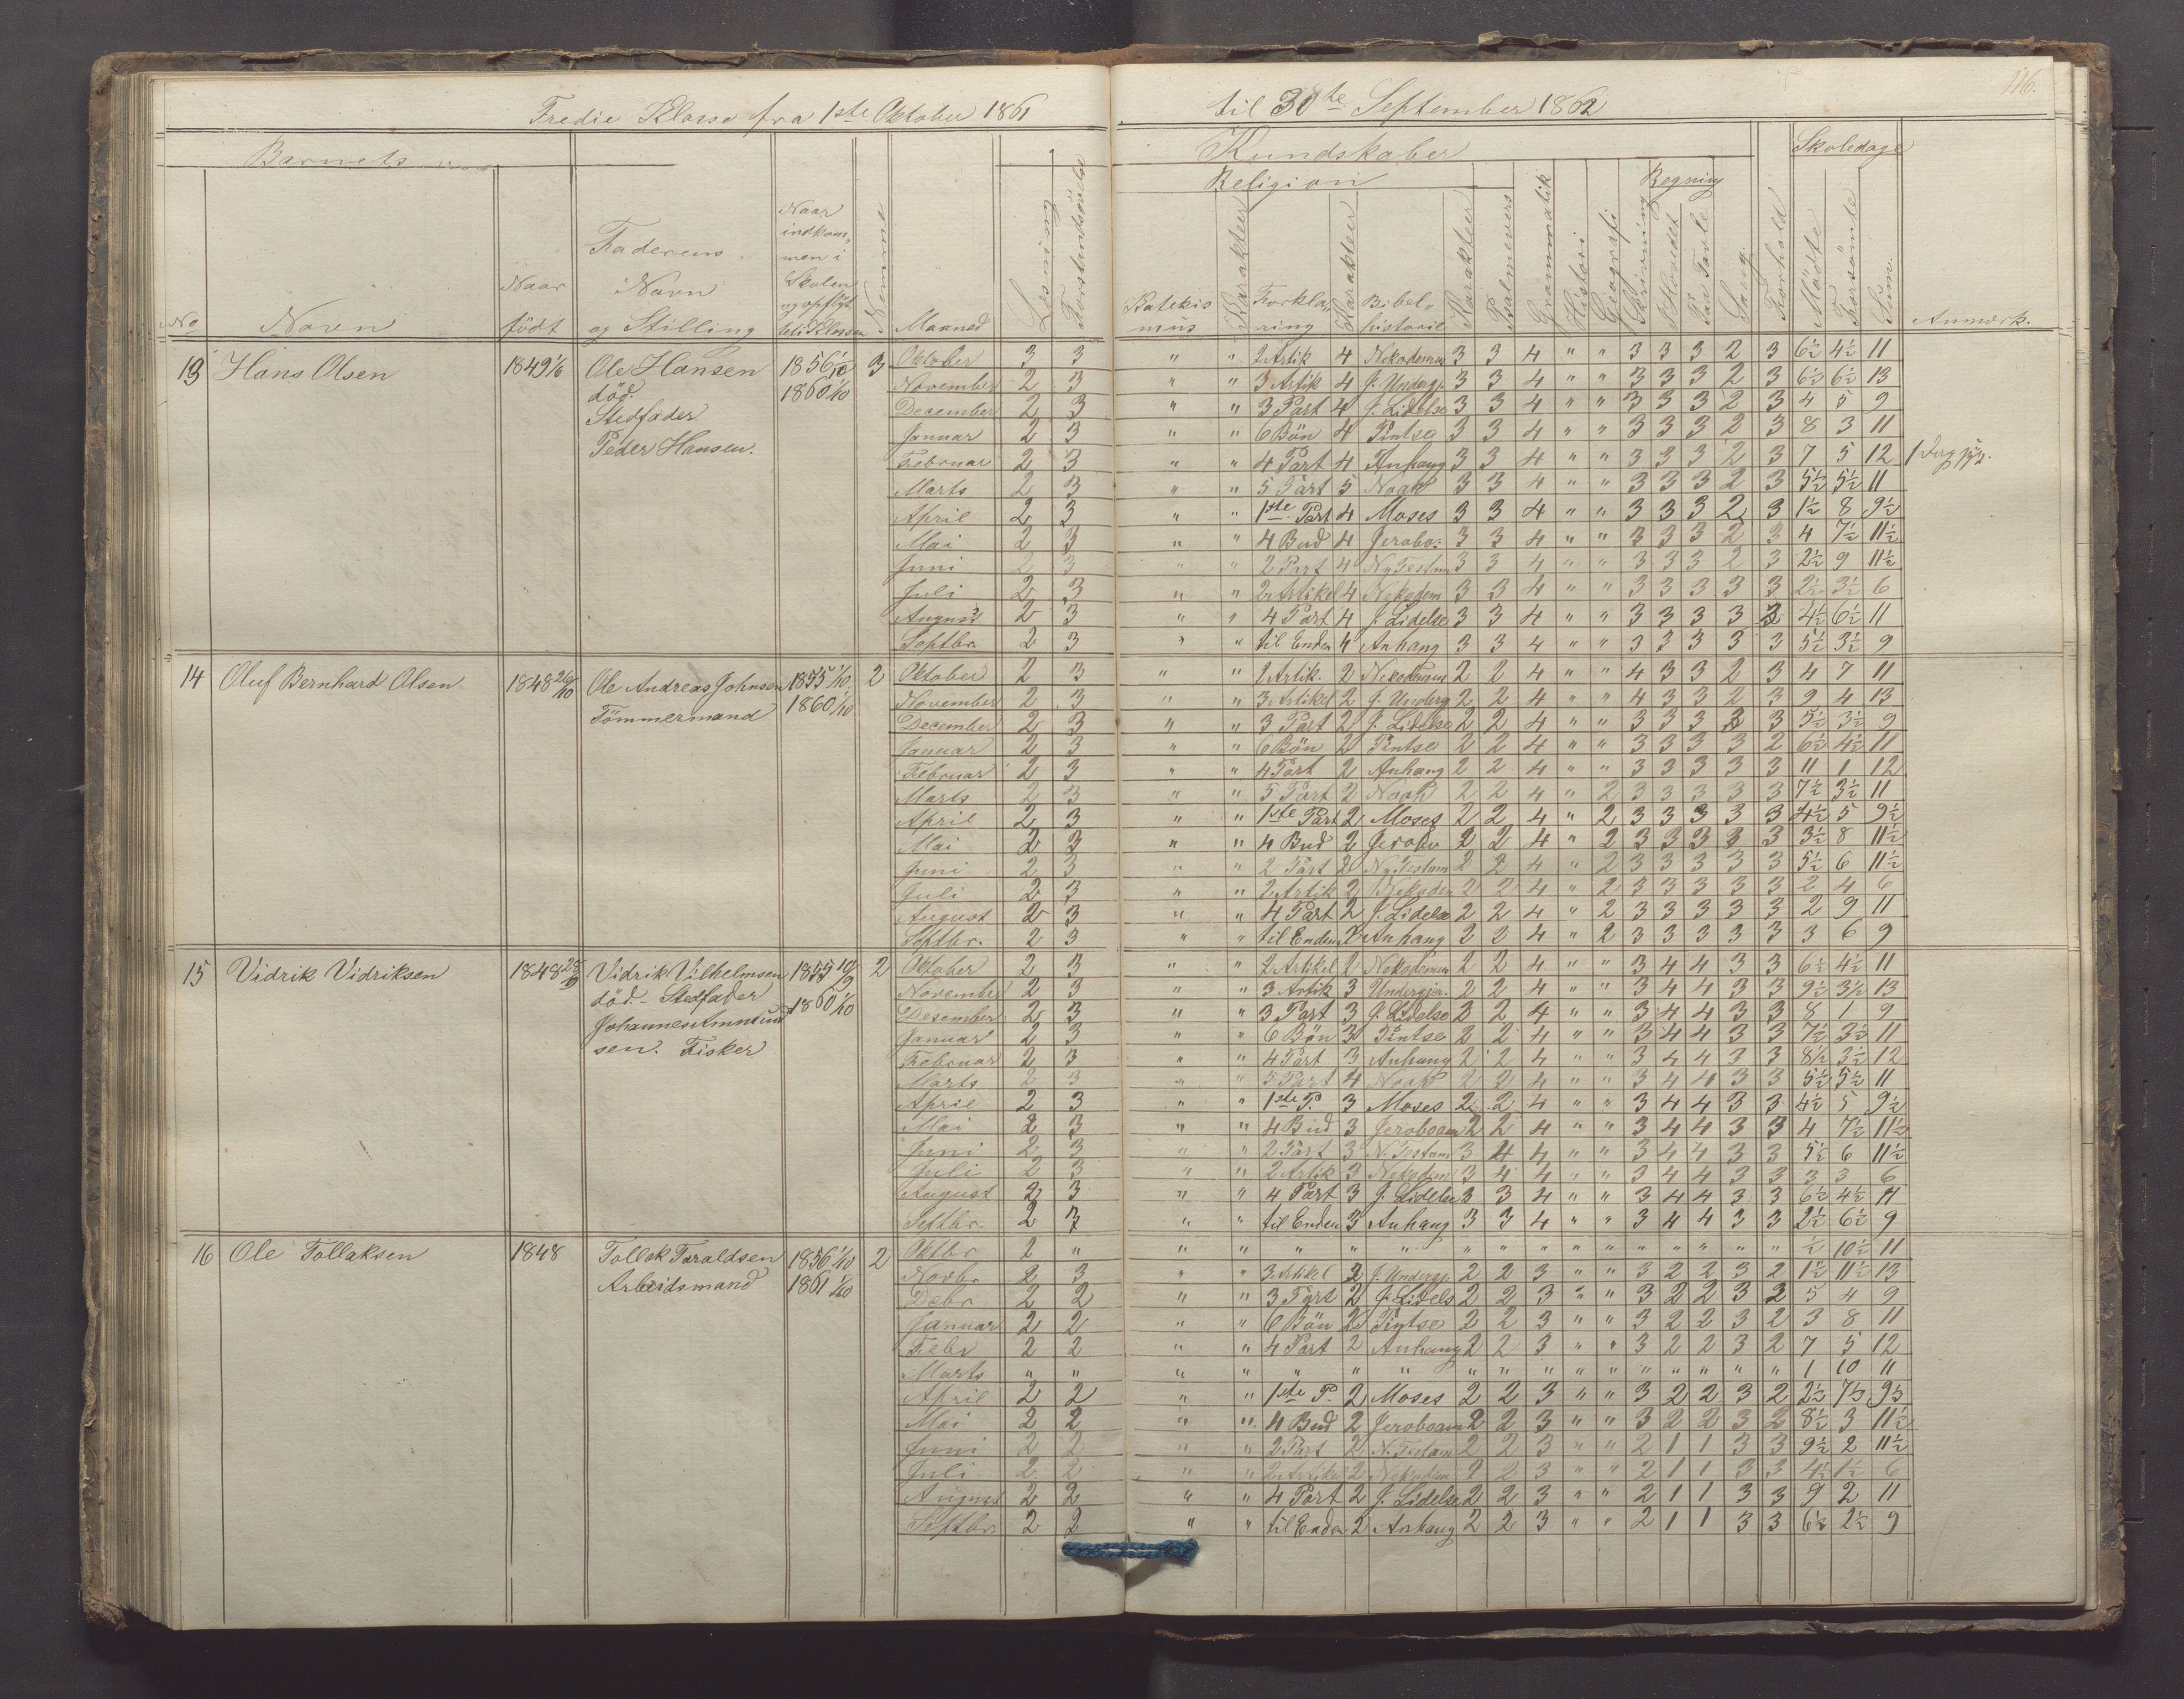 116.
Tredie Klasse fra 1ste Oktober 1861 til 30te September 1862
Barnets
Kundskaber
Skoledage
Religion
Regning
No
Navn
Naar födt
Faderens Navn og Stilling
Naar indkommen i Skolen og opflyt. til Klassen
Nemme
Maaned
Læsning
Forstandsövelse
Katekismus
Karakteer
Forklaring
Karakteer
Bibelhistorie
Karakteer
Psalmevers
Grammatik
Histori
Geografi
Skrivning
I Hovedet
Paa Tavle
Sang
Forhold
Mödte
Forsömte
Sum.
Anmærk.
13 Hans Olsen 1849 1/6 Ole Hansen död. Stedfader Peder Hansen. 1856 1/10 1860 1/10 3
Oktober 3 3 " " 2 Artik 4 Nekodemus 3 3 4 " " 3 3 3 2 3 6½ 4½ 11
November 2 3 " " 3 Artik 4 J. Undergj. 3 3 4 " " 3 3 3 2 3 6½ 6½ 13
December 2 3 " " 3 Part 4 J. Lidelse 3 3 4 " " 3 3 3 2 3 4 5 9
Januar 2 3 " " 6 Bön 4 Pintse 3 3 4 " " 3 3 3 2 3 8 3 11
Februar 2 3 " " 4 Part 4 Anhang 3 3 4 " " 3 3 3 2 3 7 5 12 1 Dag
Marts 2 3 " " 5 Part 5 Noah 3 3 4 " " 3 3 3 2 3 5½ 5½ 11
April 2 3 " " 1ste Part 4 Moses 3 3 4 " " 3 3 3 2 3 1½ 8 9½
Mai 2 3 " " 4 Bud 4 Jerobo: 3 3 4 " " 3 3 3 2 3 4 7½ 11½
Juni 2 3 " " 2 Part 4 Ny Testam 3 3 4 " " 3 3 3 2 3 2½ 9 11½
Juli 2 3 " " 2 Artikel 4 Nekodem 3 3 4 " " 3 3 3 3 3 2½ 3½ 6
August 2 3 " " 4 Part 4 J. Lidelse 3 3 4 " " 3 3 3 3 3 4½ 6½ 11
Septbr. 2 3 " " til Enden 4 Anhang 3 3 4 " " 3 3 3 3 3 5½ 3½ 9
14 Oluf Bernhard Olsen 1848 26/10 Ole Andreas Johnsen Tömmermand 1855 1/10 1860 1/10 2
Oktober 2 3 " " 2 Artik. 2 Nekodemus 2 2 4 " " 4 3 3 2 3 4 7 11
November 2 3 " " 3 Artikel 2 J. Underg 2 2 4 " " 4 3 3 2 3 9 4 13
December 2 3 " " 3 Part 2 J. Lidelse 2 2 4 " " 3 3 3 3 3 5½ 3½ 9
Januar 2 3 " " 6 Bön 2 Pintse 2 2 4 " " 3 3 3 3 2 6½ 4½ 11
Februar 2 3 " " 4 Part 2 Anhang 2 2 4 " " 3 3 3 3 3 11 1 12
Marts 2 3 " " 5 Part 2 Noah 2 2 4 " 2 3 3 3 3 3 7½ 3½ 11
April 2 3 " " 1ste Part 2 Moses 2 2 4 " 2 3 3 3 3 3 4½ 5 9½
Mai 2 3 " " 4 Bud 2 Jerobo 2 2 4 " 2 3 3 3 3 3 3½ 8 11½
Juni 2 3 " " 2 Part 2 Ny Testam 2 2 4 " 2 3 3 3 3 3 5½ 6 11½
Juli 2 3 " " 2 Artik 2 Nekodem 2 2 4 " 2 3 3 3 3 3 2 4 6
August 2 3 " " 4 Part 2 J. Lidelse 2 2 4 " 2 3 3 3 3 3 2 9 11
Septbr. 2 3 " " til Enden 2 Anhang 2 2 4 " 2 3 3 3 3 3 3 6 9
15 Vidrik Vidriksen 1848 Vidrik Vilhelmsen död. - Stedfader Johannes Ammundsen. Fisker 1855 10/9 1860 1/10 2
Oktober 2 3 " " 2 Artikel 2 Nekodemus 2 2 4 " " 3 4 4 3 3 6½ 4½ 11
November 2 3 " " 3 Artik 3 Undergjer. 2 2 4 " " 3 4 4 3 3 9½ 3½ 13
Desember 2 3 " " 3 Part 3 J. Lidelse 2 2 4 " " 3 4 4 3 3 8 1 9
Januar 2 3 " " 6 Bön 3 Pintse 2 2 4 " " 3 4 4 3 3 7½ 3½ 11
Februar 2 3 " " 4 Part 3 Anhang 2 2 4 " " 3 4 4 3 3 8½ 3½ 12
Marts 2 3 " " 5 Part 4 Noah 2 2 4 " " 3 4 4 3 3 5½ 5½ 11
April 2 3 " " 1ste P. 3 Moses 2 2 4 " " 3 4 4 3 3 4½ 5 9½
Mai 2 3 " " 4 Bud 3 Jeroboam 2 2 4 " " 3 4 4 3 3 4 7½ 11½
Juni 2 3 " " 2 Part 3 N. Testam 3 4 4 " " 3 4 4 3 3 5½ 6 11½
Juli 2 3 " " 2 Artik 3 Nekodem 3 4 4 " " 3 4 4 3 3 3 3 6
August 2 3 " " 4 Part 3 J. Lidelse 3 3 4 " " 3 4 4 3 3 6½ 4½ 11
Septbr. 2 3 " " til Enden 3 Anhang 3 3 4 " " 3 4 4 3 3 2½ 6½ 9
16 Ole Tollaksen 1848 Tollak Taraldsen Arbeidsmand 1856 1/10 1861 1/10 2
Oktbr 2 " " " " " " " " " " " " " " " " ½ 10½ 11
Novbr 2 3 " " 3 Artikel 2 J. Undergj. 2 2 3 " " 3 2 2 3 2 1½ 11½ 13
Debr 2 2 " " 3 Part 2 J. Lidels 2 2 3 " " 3 2 2 3 2 5 4 9
Januar 2 2 " " 6 Bön 2 Pintse 2 2 3 " " 3 2 2 3 2 3 8 11
Febr 2 2 " " 4 Part 2 Anhang 2 2 3 " " 3 2 2 3 2 7 5 12
Marts " " " " " " " " " " " " " " " " " 1 10 11
April 2 2 " " 1ste P. 2 Moses 2 2 3 " " 3 2 2 3 2 2½ 7½ 9½
Mai 2 2 " " 4 Bud 2 Jeroboam 2 2 3 " " 3 2 2 3 2 8½ 3 11½
Juni 2 2 " " 2 Part 2 N. Testam 2 2 3 " " 2 1 1 3 3 9½ 2 11½
Juli 2 2 " " 2 Artikel 2 Nekodem 2 2 3 " " 2 1 1 3 3 4½ 1½ 6
August 2 2 " " 4 Part 2 J. Lidelse 2 2 3 " " 2 1 1 3 3 9 2 11
Septbr 2 2 " " til Enden 2 Anhang 2 2 3 " " 2 1 1 3 3 6½ 2½ 9